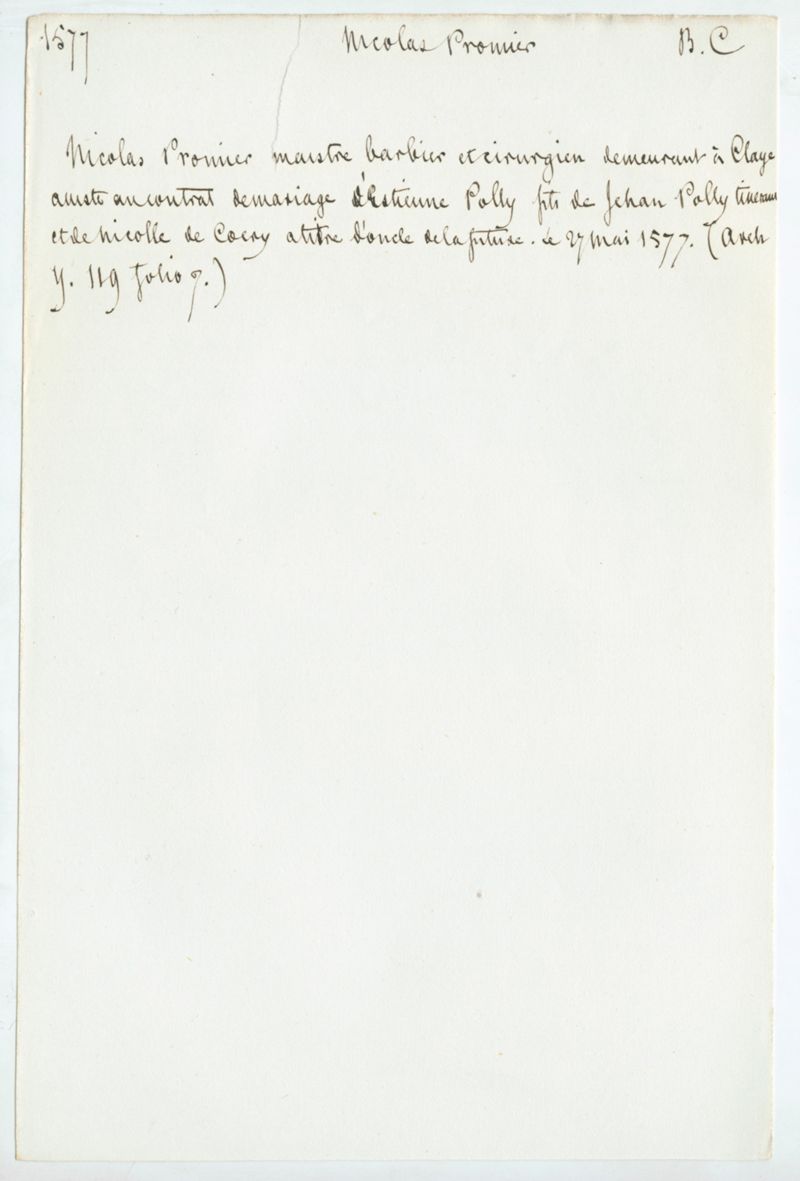 1577 Nicolas Promier B. C
Nicolas Promier maistre barbier et cirurgien demeurant à Claye
assiste au contrat de mariage d'Estienne Polly fils de Jehan Polly
et de Nicolle de Coery a titre d'oncle de la future. Le 27 mai 1577. (Arch
Y. 119 folio 7.)